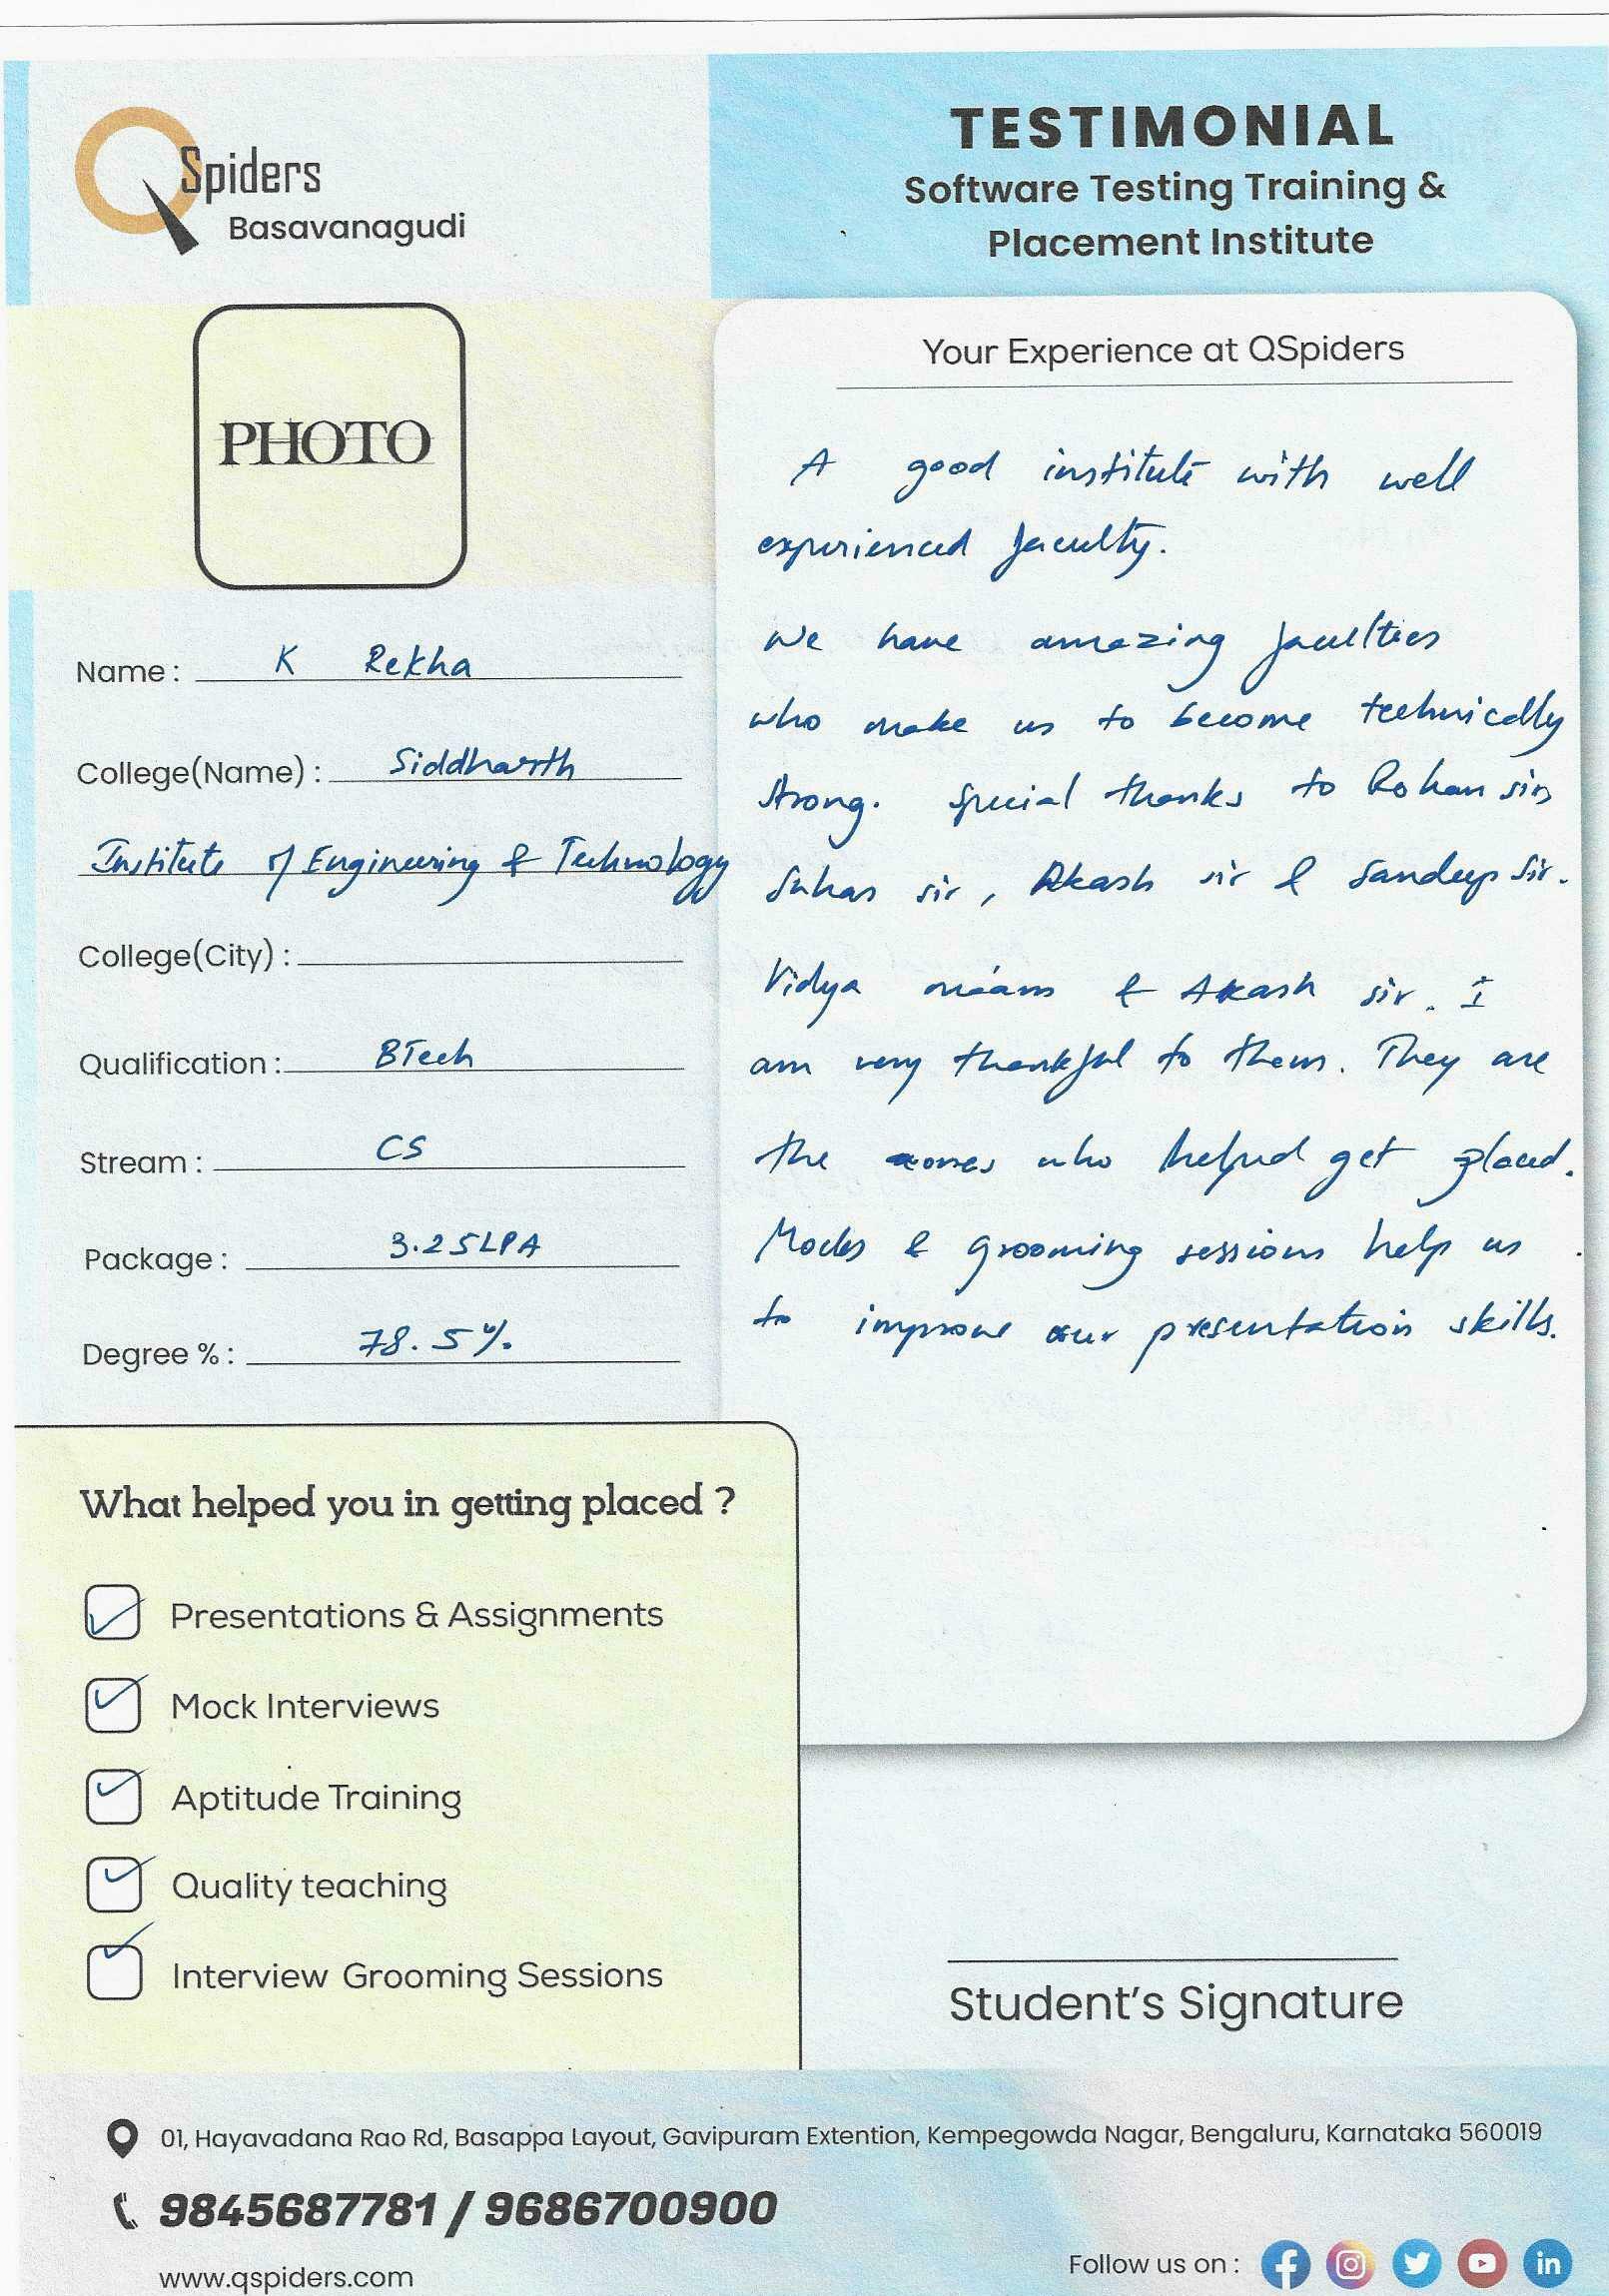 QSpiders
Basavanagudi
TESTIMONIAL
Software Testing Training &
Placement Institute
PHOTO
Name : K Rekha
College(Name) : Siddharth
Institute of Engineering & Technology
College(City) :
Qualification : BTech
Stream : CS
Package : 3.25LPA
Degree % : 78.5%
Your Experience at QSpiders
A good institute with well
experienced faculty.
We have amazing faculties
who make us to become technically
strong. Special thanks to Rohan sir
Suhas sir, Akash sir & Sandeep Sir.
Vidya ma'am & Akash sir. I
am very thankful to them. They are
the ones who helped get placed.
Mocks & grooming sessions help us
to improve our presentation skills.
What helped you in getting placed ?
Presentations & Assignments
Mock Interviews
Aptitude Training
Quality teaching
Interview Grooming Sessions
Student's Signature
01, Hayavadana Rao Rd, Basappa Layout, Gavipuram Extention, Kempegowda Nagar, Bengaluru, Karnataka 560019
9845687781 / 9686700900
www.qspiders.com
Follow us on :